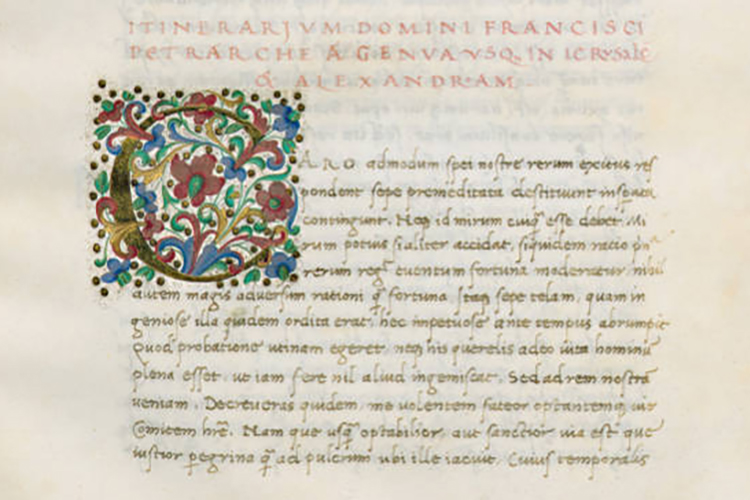 ITINERARIVM DOMINI FRANCISCI
PETRARCHE A GENVA VSQ. IN IERVSALE
& ALEXANDRIAM
CARO admodum spei nostre rerum exitus res
pondent sepe premeditata destituunt insperata
contingunt. Neq id mirum cuiq esse debet. Mi
rum potius si aliter accidat, siquidem ratio
rerum reg. euentum fortuna moderatur nihil
autem magis aduersum rationi q̃ fortuna. Itaq sepe telam, quam in
geniose illa quidem ordita erat, hec impetuose ante tempus abrumpit
Quod probatione utinam egeret. neq his querelis adeo uita hominũ
plena esset. ut iam fere nil aliud ingemiscat. Sed ad rem nostrã
ueniam. Decreueras quidem me uolentem fateor optantemq uie
Comitem hr̃e. Nam que usq̃ optabilior, aut sanctior uia est que
iustior pegrina q̃ ad pulcrum ubi ille iacuit. Cuius temporalis